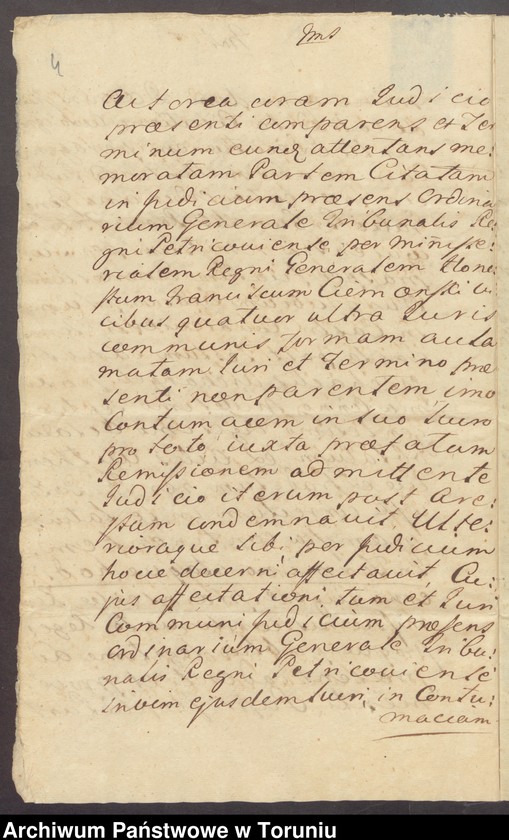 4
Actorea coram Judicio
præsenti comparens et Ter
minum eunq attentans me:
moratam Partem Citatam
in Judicium præsens Ordina
rium Generale Tribunalis Re
gni Petricoviense per ministe:
rialem Regni Generalem Hone
stum Franciscum Ciemœnski vi
cibus quatuor ultra Juris
communis formam accla
matam Juri et Termino præ
senti non parentem, imo
Contumacem in suo Lucro
pro toto iuxta præfatam
Remissionem admittente
Judicio iterum post Are:
stum condemnavit Ulte:
rioraque sibi per Judicium
hocce decerni affectavit. Cu:
jus affectationi tum et Juri
Communi Judicium præsens
Ordinarium Generale Tribu:
nalis Regni Petricoviense
invim ejusdem Juri, in Contu:
maciam
Archiwum Państwowe w Toruniu